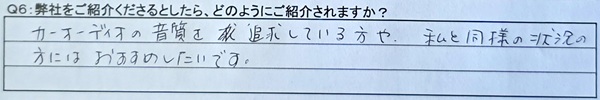 Q6:弊社をご紹介くださるとしたら、どのようにご紹介されますか？
カーオーディオの音質を追求している方や、私と同様の状況の
方にはおすすめしたいです。